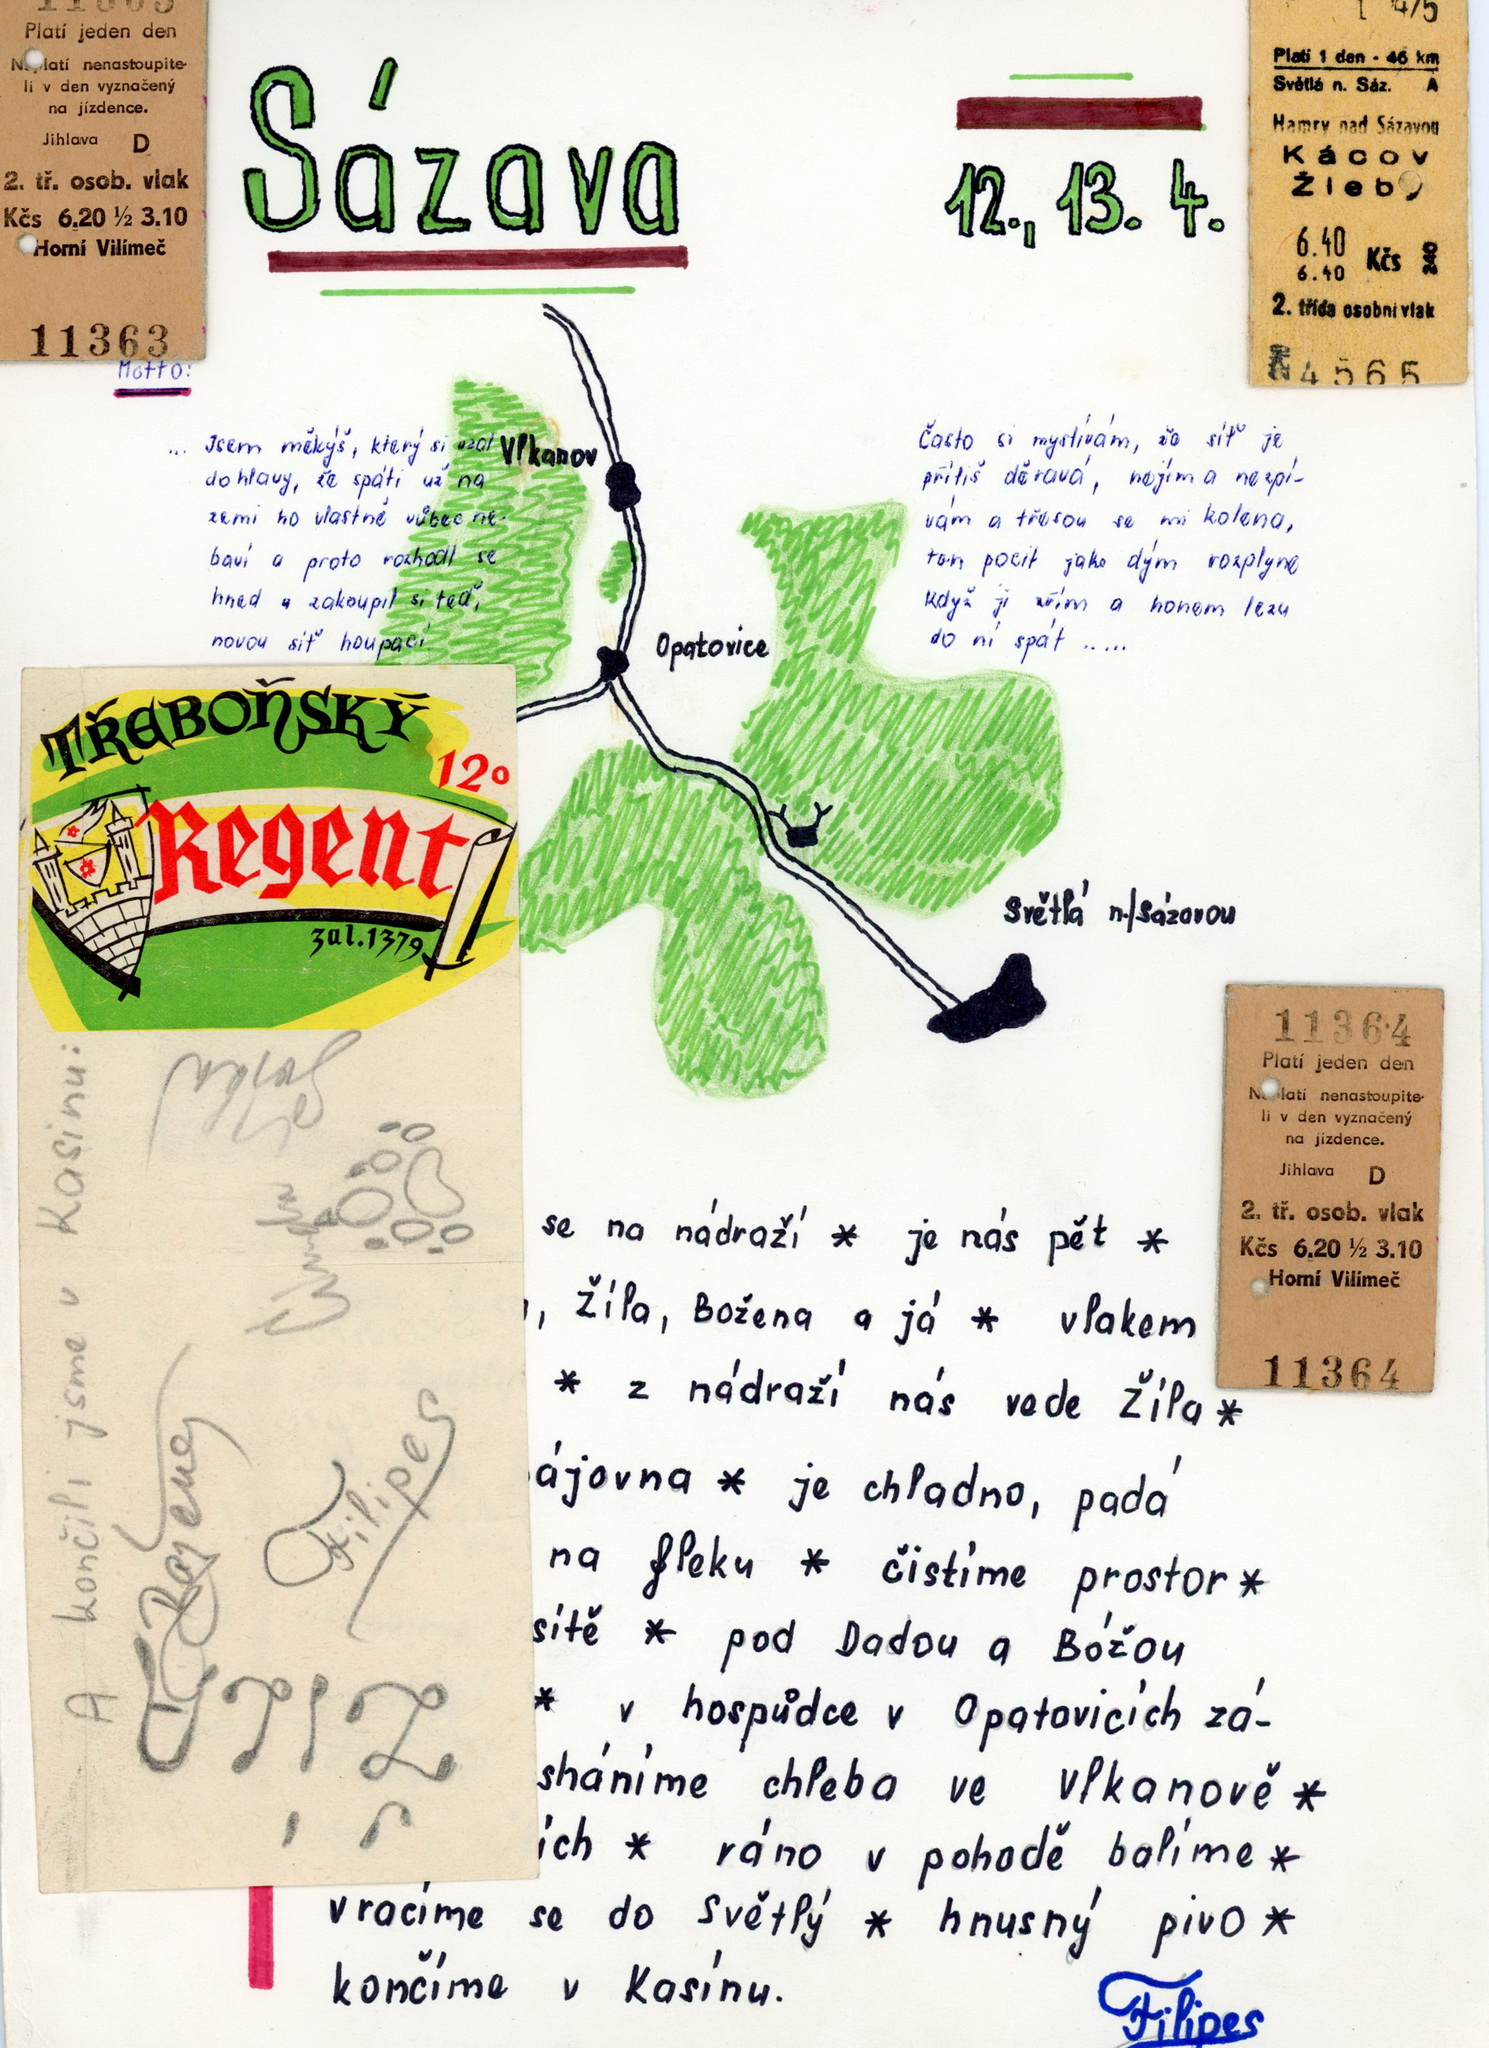 11363
Platí jeden den
Neplatí nenastoupite-
li v den vyznačený
na jízdence.
Jihlava D
2. tř. osob. vlak
Kčs 6.20 ½ 3.10
Horní Vilímeč
11363
Sázava
12., 13. 4.
Platí 1 den - 46 km
Světlá n. Sáz. A
Hamry nad Sázavou
Kácov
Žleby
6.40
6.40 Kčs
2. třída osobní vlak
4565
Motto:
... Jsem měkýš, který si vzal
do hlavy, že spáti už na
zemi ho vlastně vůbec ne-
baví a proto rozhodl se
hned a zakoupil si teď,
novou síť houpací
Často si myslívám, že síť je
příliš děravá, nejím a nezpí-
vám a třesou se mi kolena,
ten pocit jako dým rozplyne
když ji zřím a honem lezu
do ní spát .....
Vlkanov
Opatovice
Světlá n/Sázavou
TŘEBOŇSKÝ
12°
Regent
zal. 1379
A končili jsme v Kasinu:
Filipes
11364
Platí jeden den
Neplatí nenastoupite-
li v den vyznačený
na jízdence.
Jihlava D
2. tř. osob. vlak
Kčs 6.20 ½ 3.10
Horní Vilímeč
11364
se na nádraží * je nás pět *
, Žíla, Božena a já * vlakem
* z nádraží nás vede Žíla *
ájovna * je chladno, padá
na fleku * čistíme prostor *
sítě * pod Dadou a Bóžou
* v hospůdce v Opatovicích zá-
sháníme chleba ve Vlkanově *
ích * ráno v pohodě balíme *
vracíme se do Světlý * hnusný pivo *
končíme v Kasínu.
Filipes